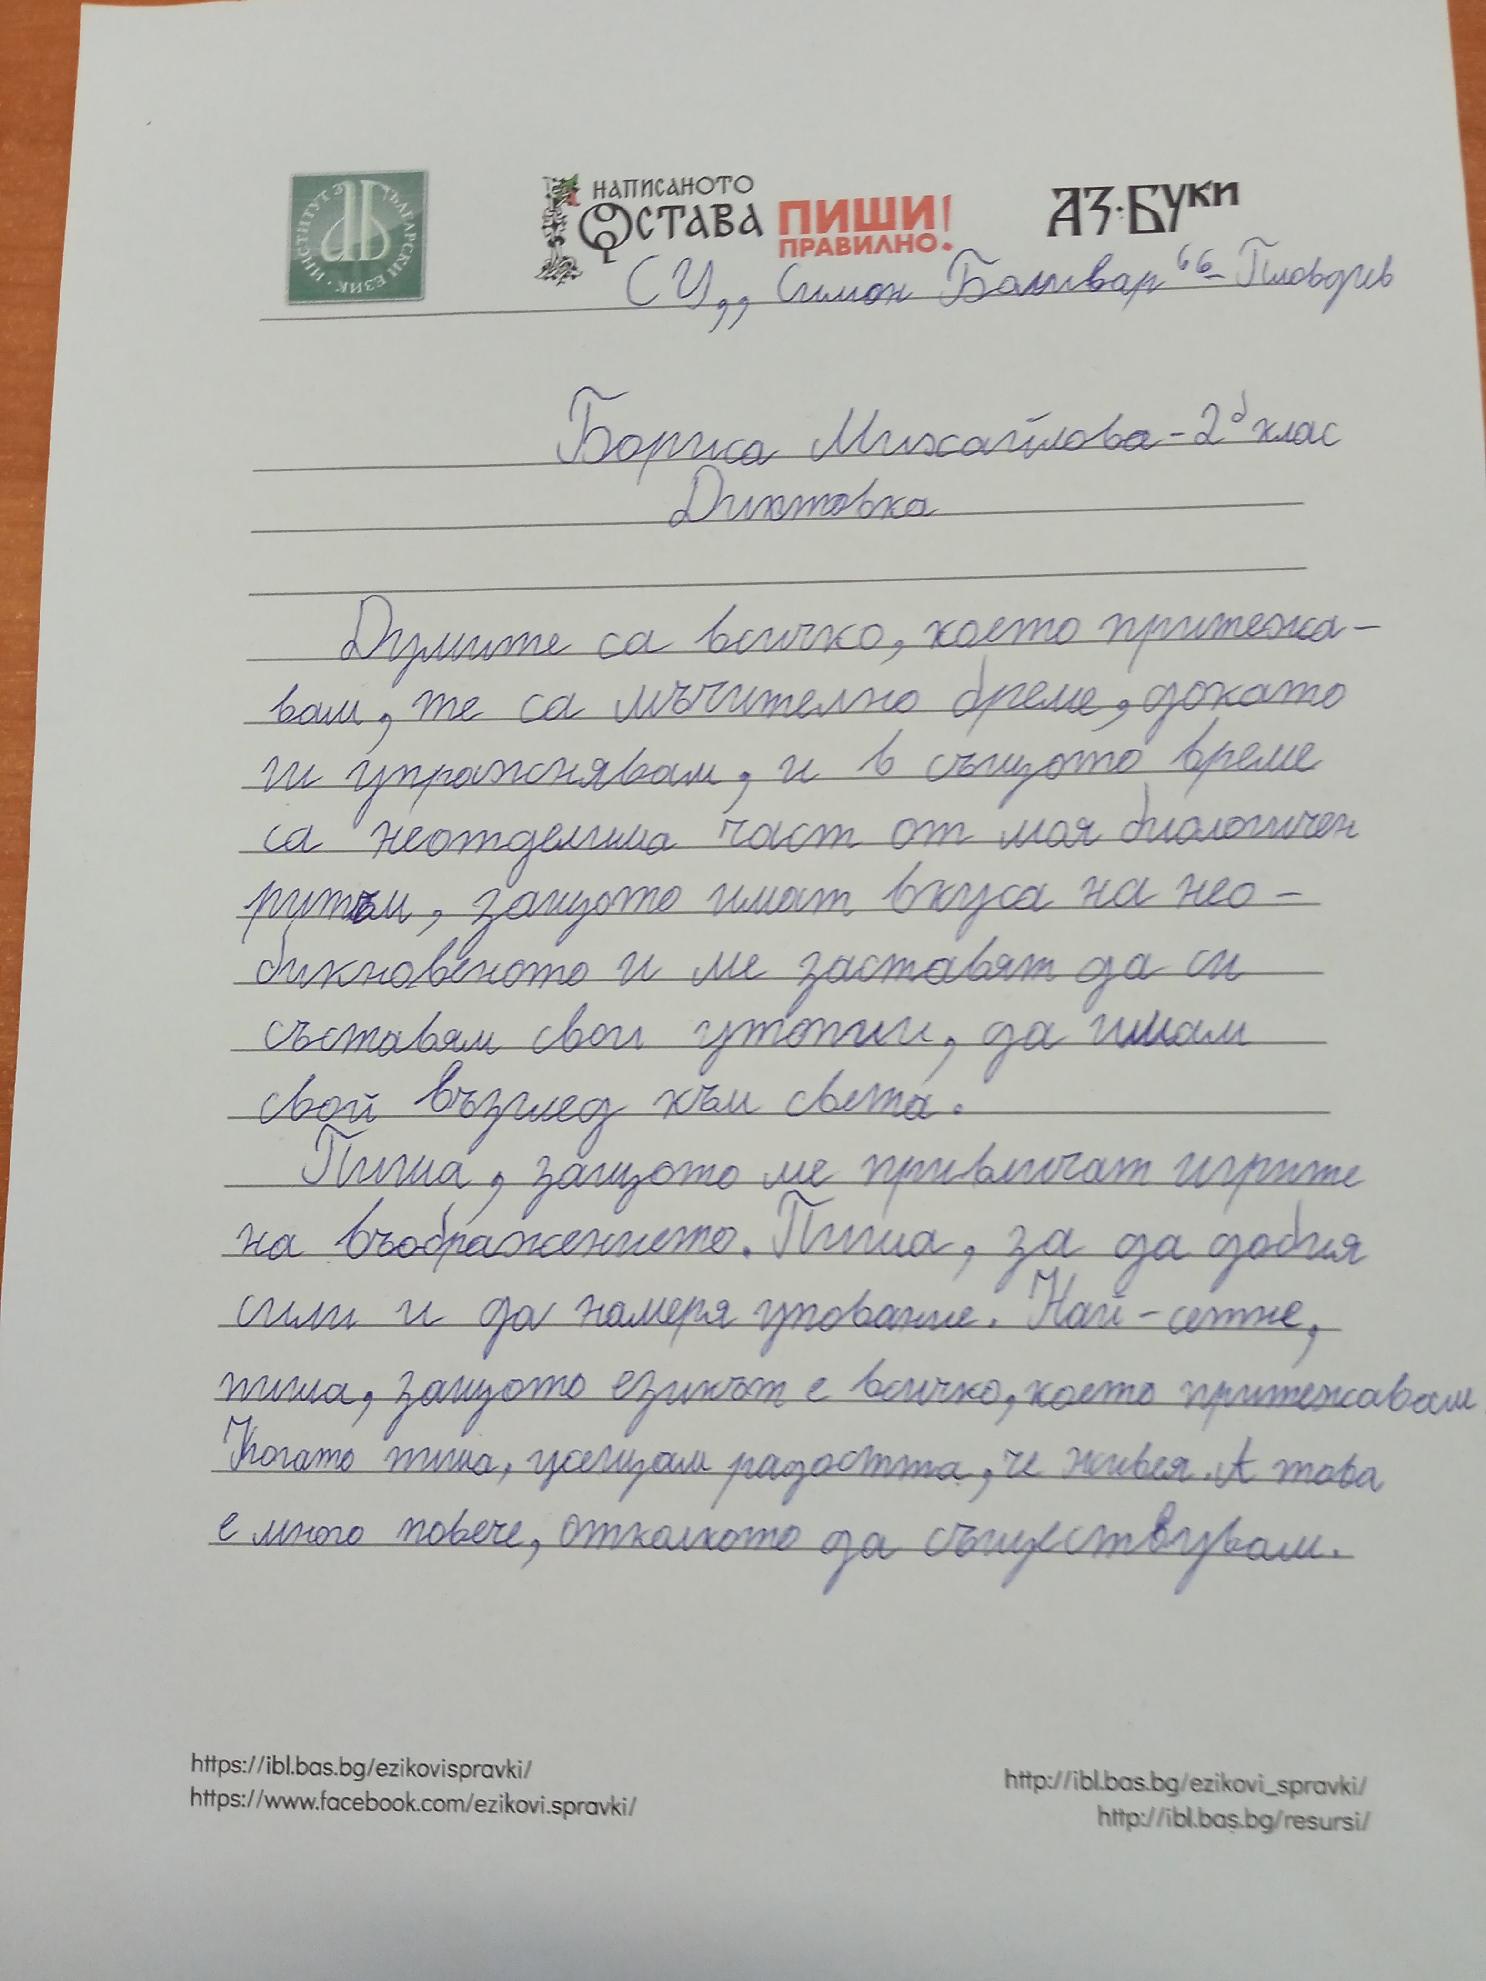 ИНСТИТУТ ЗА БЪЛГАРСКИ ЕЗИК
НАПИСАНОТО
ОСТАВА
ПИШИ
ПРАВИЛНО!
АЗ·БУКИ
СУ „Симон Боливар“ – Пловдив
Бориса Михайлова – 2б клас
Диктовка
Думите са всичко, което притежа–
вам, те са мъчително бреме, докато
ги упражнявам, и в същото време
са неотделима част от моя биологичен
ритъм, защото имат вкуса на нео–
бикновеното и ме заставят да си
съставям свои утопии, да имам
свой възглед към света.
Пиша, защото ме привличат игрите
на въображението. Пиша, за да добия
сили и да намеря упование. Най-сетне,
пиша, защото езикът е всичко, което притежавам.
Когато пиша, усещам радостта, че живея. А това
е много повече, отколкото да съществувам.
https://ibl.bas.bg/ezikovispravki/
https://www.facebook.com/ezikovi.spravki/
http://ibl.bas.bg/ezikovi_spravki/
http://ibl.bas.bg/resursi/